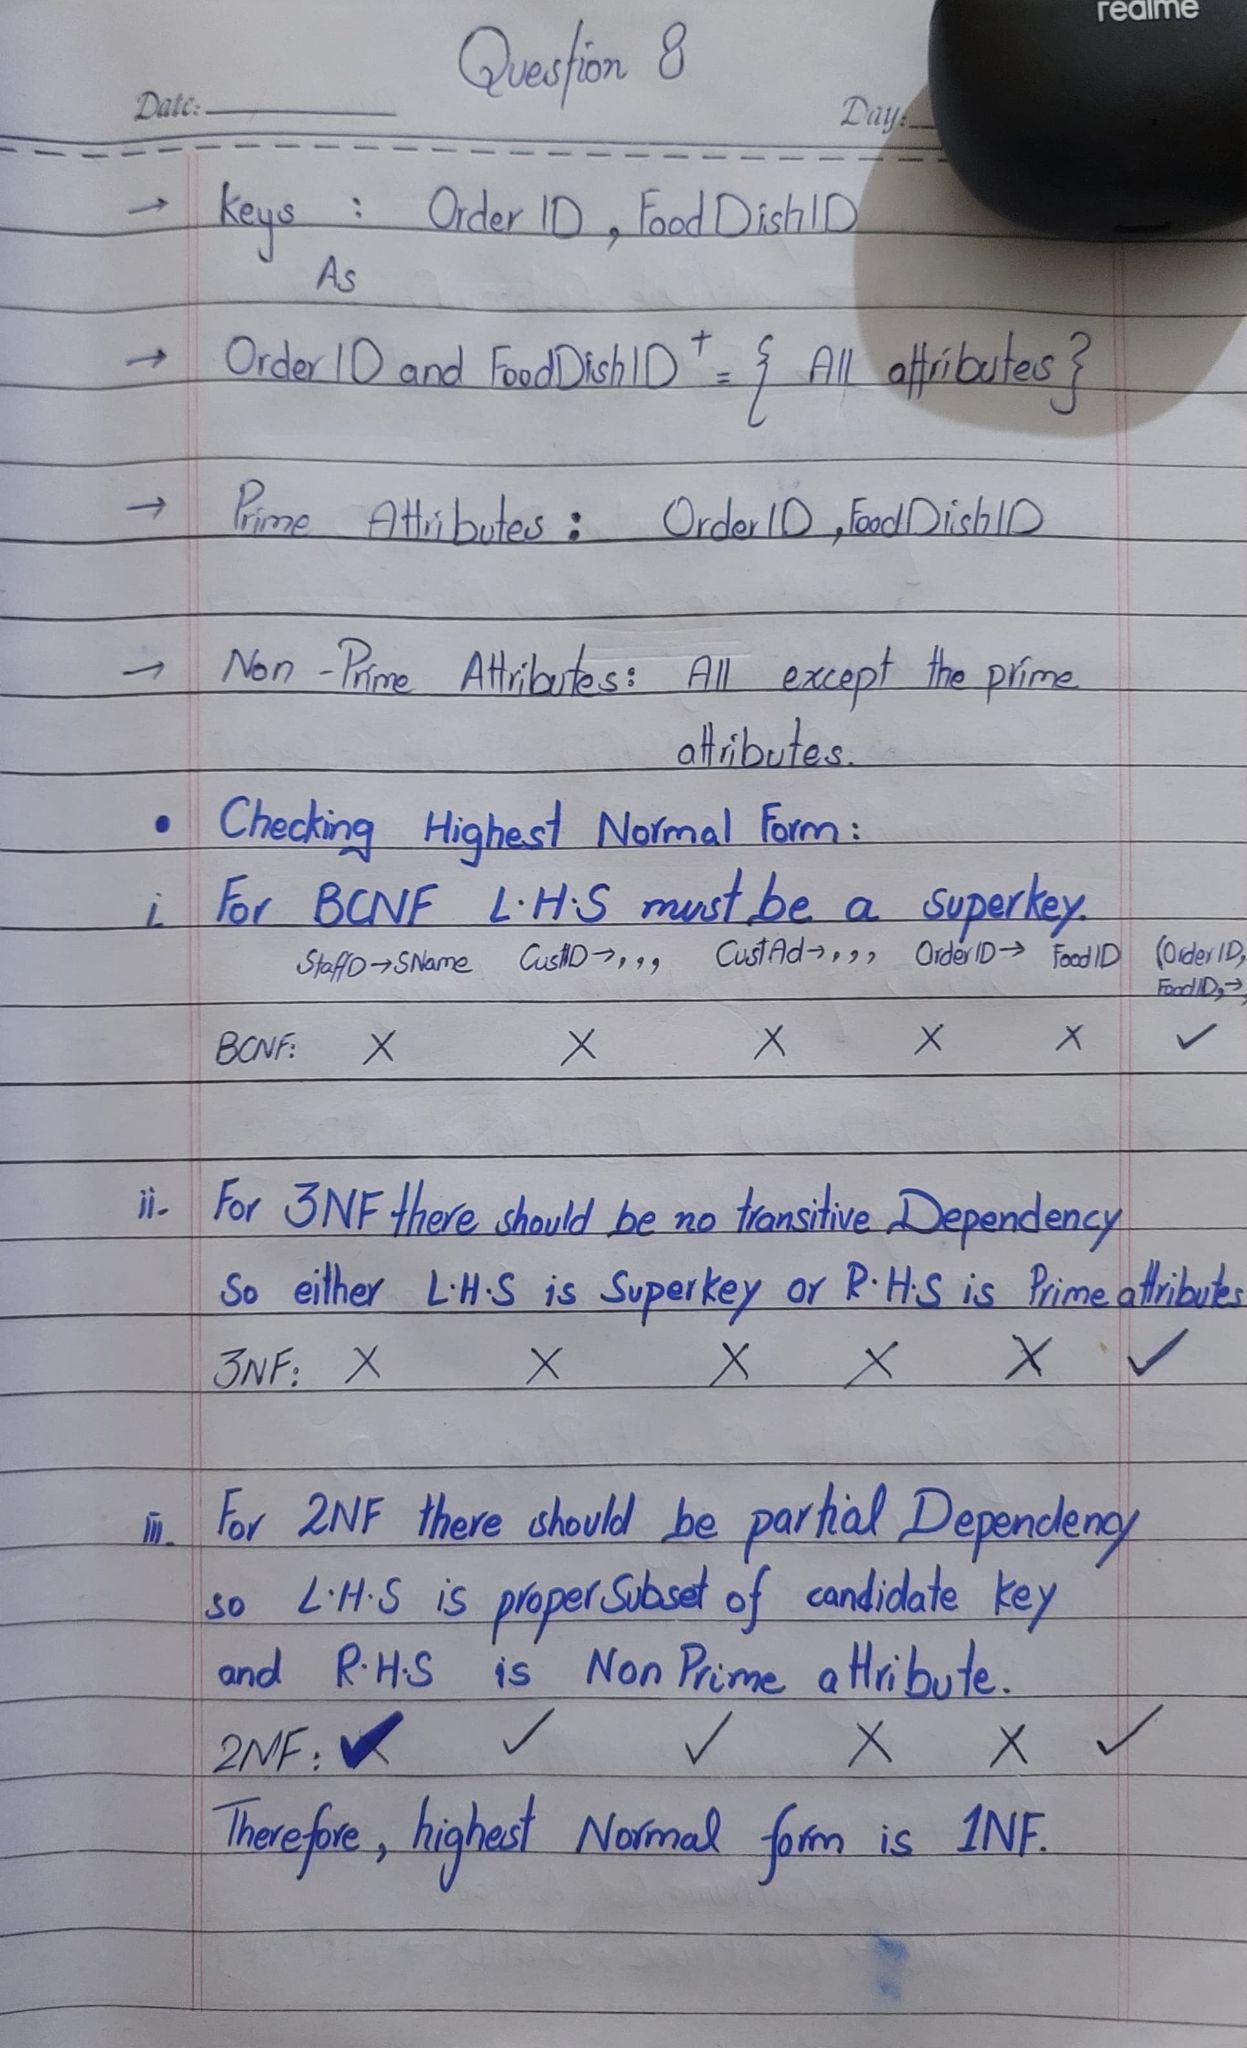 realme
Question 8
Date:
Day:
→ Keys : Order ID , FoodDishID
As
→ Order ID and FoodDishID⁺ = { All attributes }
→ Prime Attributes : OrderID , FoodDishID
→ Non-Prime Attributes: All except the prime
attributes.
• Checking Highest Normal Form:
i For BCNF L.H.S must be a superkey.
StaffID→SName CustID→,,, CustAd→,,, OrderID→ FoodID (OrderID,
FoodID,→,
BCNF: X X X X X ✓
ii. For 3NF there should be no transitive Dependency
So either L.H.S is Superkey or R.H.S is Prime attributes
3NF: X X X X X ✓
iii. For 2NF there should be partial Dependency
so L.H.S is proper Subset of candidate key
and R.H.S is Non Prime attribute.
2NF: ✓ ✓ ✓ X X ✓
Therefore, highest Normal form is 1NF.